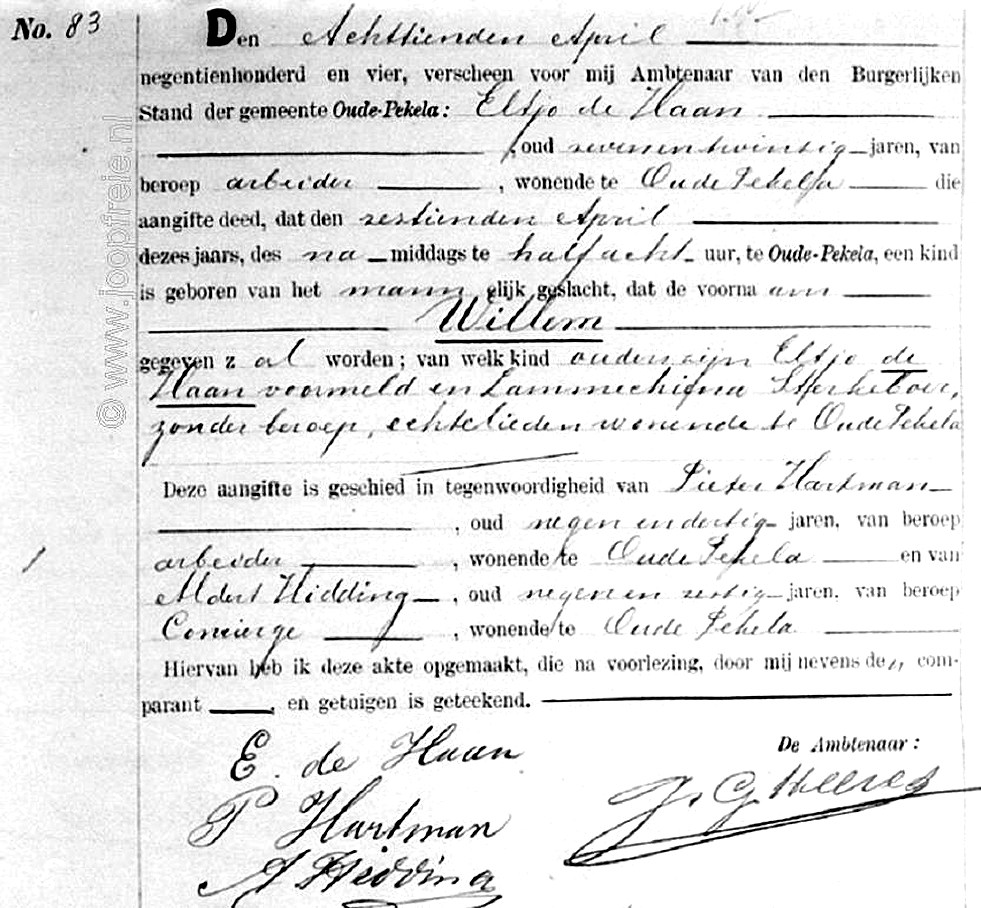 No. 83
Den Achttienden April
negentienhonderd en vier, verscheen voor mij Ambtenaar van den Burgerlijken
Stand der gemeente Oude-Pekela: Eltjo de Haan
, oud zevenentwintig jaren, van
beroep arbeider , wonende te Oude Pekela die
aangifte deed, dat den zestienden April
dezes jaars, des na middags te half acht uur, te Oude-Pekela, een kind
is geboren van het mannelijk geslacht, dat de voornaam
Willem
gegeven zal worden; van welk kind ouders zijn Eltjo de
Haan voormeld en Lammechiena Sterkeboer,
zonder beroep, echtelieden wonende te Oude Pekela
Deze aangifte is geschied in tegenwoordigheid van Pieter Hartman
, oud negen en dertig jaren, van beroep
arbeider , wonende te Oude Pekela en van
Aldert Hidding , oud negen en zestig jaren, van beroep
Concierge , wonende te Oude Pekela
Hiervan heb ik deze akte opgemaakt, die na voorlezing, door mij nevens de „ com-
parant , en getuigen is geteekend.
De Ambtenaar:
E. de Haan
J. G. Heeres
P Hartman
A Hidding
© www.joopfreie.nl